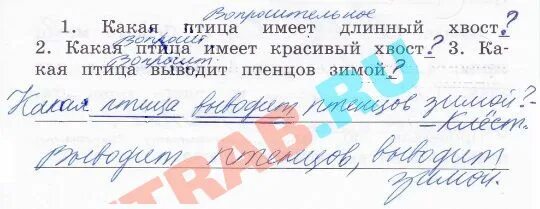 Вопросительное
1. Какая птица имеет длинный хвост?
Вопросит.
2. Какая птица имеет красивый хвост? 3. Ка-
Вопросит.
кая птица выводит птенцов зимой?
Какая птица выводит птенцов зимой? -
- Клёст.
Выводит птенцов, выводит
зимой.
TRAB.RU